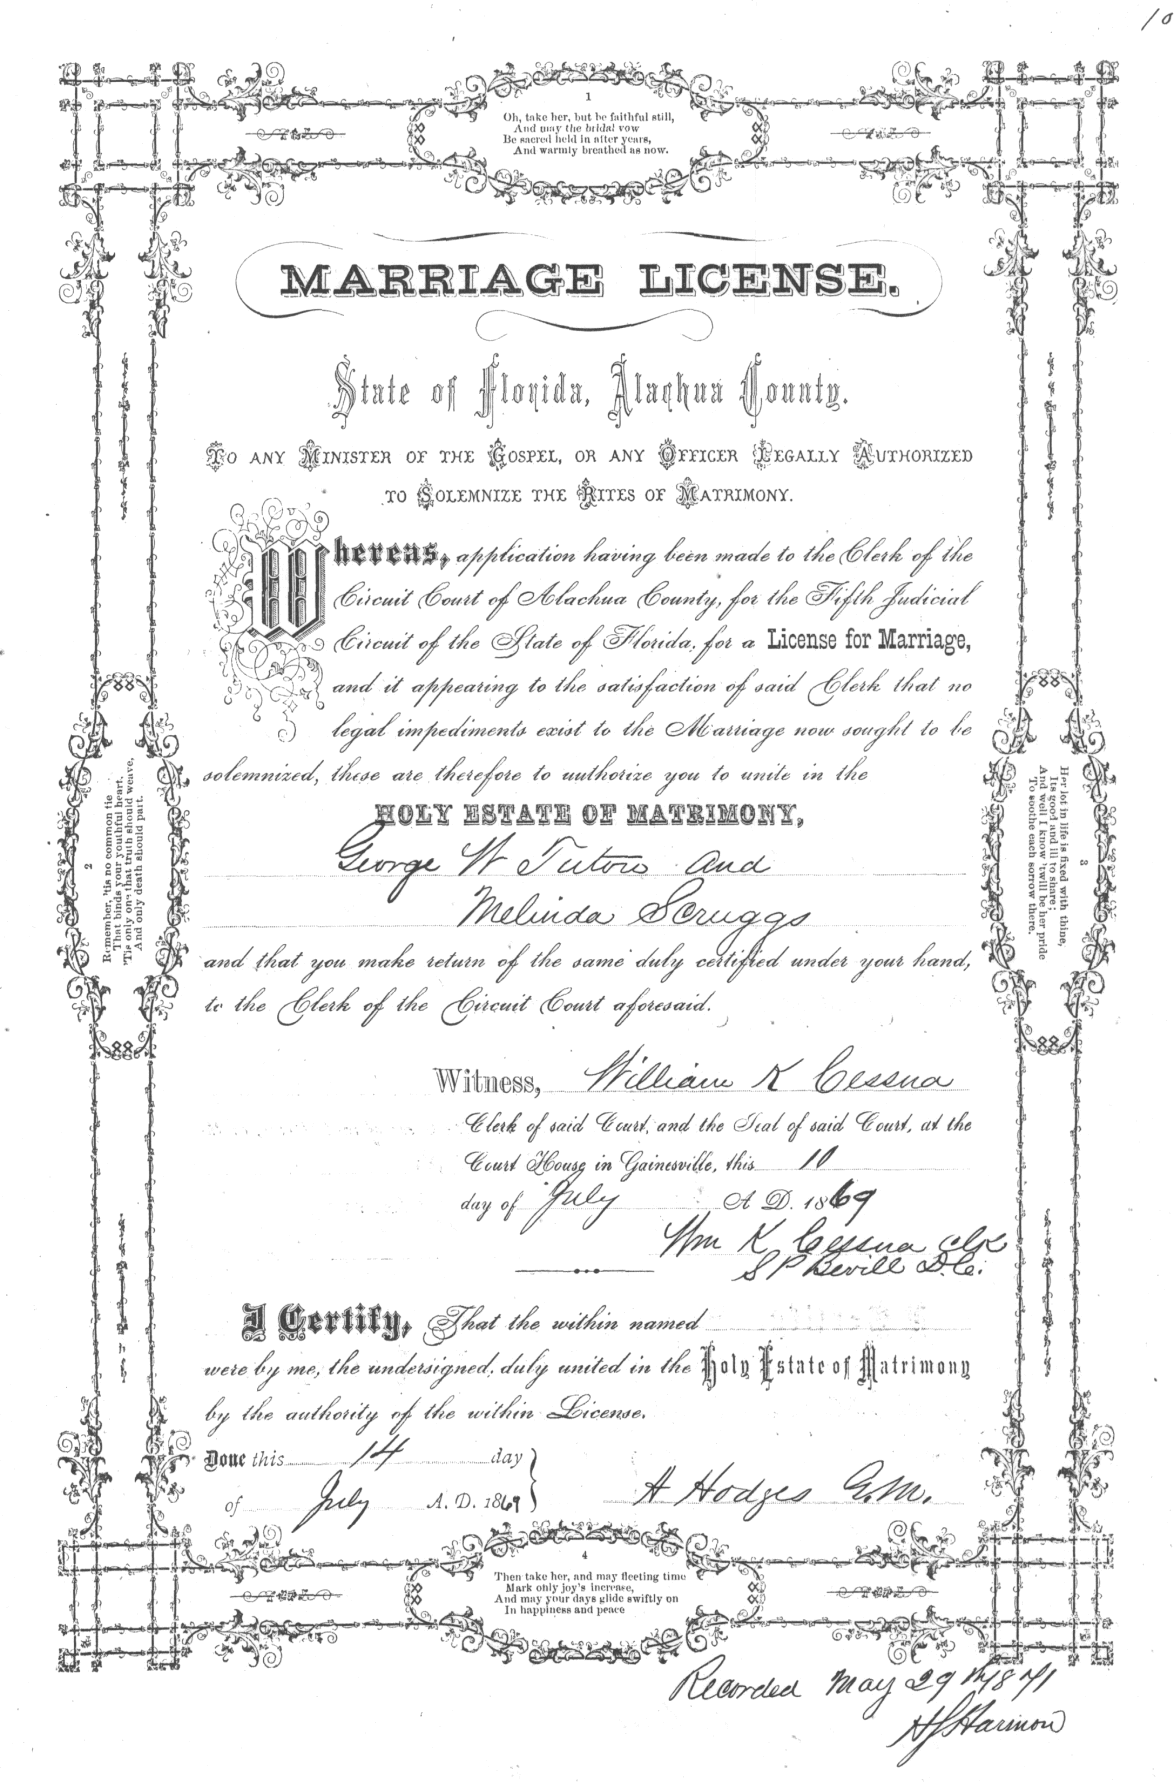 10
1
Oh, take her, but be faithful still,
And may the bridal vow
Be sacred held in after years,
And warmly breathed as now.
MARRIAGE LICENSE.
State of Florida, Alachua County.
To any Minister of the Gospel, or any Officer Legally Authorized
to Solemnize the Rites of Matrimony.
Whereas, application having been made to the Clerk of the
Circuit Court of Alachua County, for the Fifth Judicial
Circuit of the State of Florida, for a License for Marriage,
and it appearing to the satisfaction of said Clerk that no
legal impediments exist to the Marriage now sought to be
solemnized, these are therefore to authorize you to unite in the
HOLY ESTATE OF MATRIMONY,
George W Tuton and
Melinda Scruggs
and that you make return of the same duly certified under your hand,
to the Clerk of the Circuit Court aforesaid.
2
Remember, 'tis no common tie
That binds your youthful heart.
'Tis only one that truth should weave,
And only death should part.
3
Her lot in life is fixed with thine,
Its good and ill to share;
And well I know 'twill be her pride
To soothe each sorrow there.
Witness, William K Cessna
Clerk of said Court, and the Seal of said Court, at the
Court House in Gainesville, this 10
day of July A. D. 1869
Wm K Cessna Clk
S P Bevill D.C.
I Certify, That the within named
were by me, the undersigned, duly united in the Holy Estate of Matrimony
by the authority of the within License.
Done this 14 day
of July A. D. 1869
A Hodges G.M.
4
Then take her, and may fleeting time
Mark only joy's increase,
And may your days glide swiftly on
In happiness and peace
Recorded May 29th 1871
Harmon